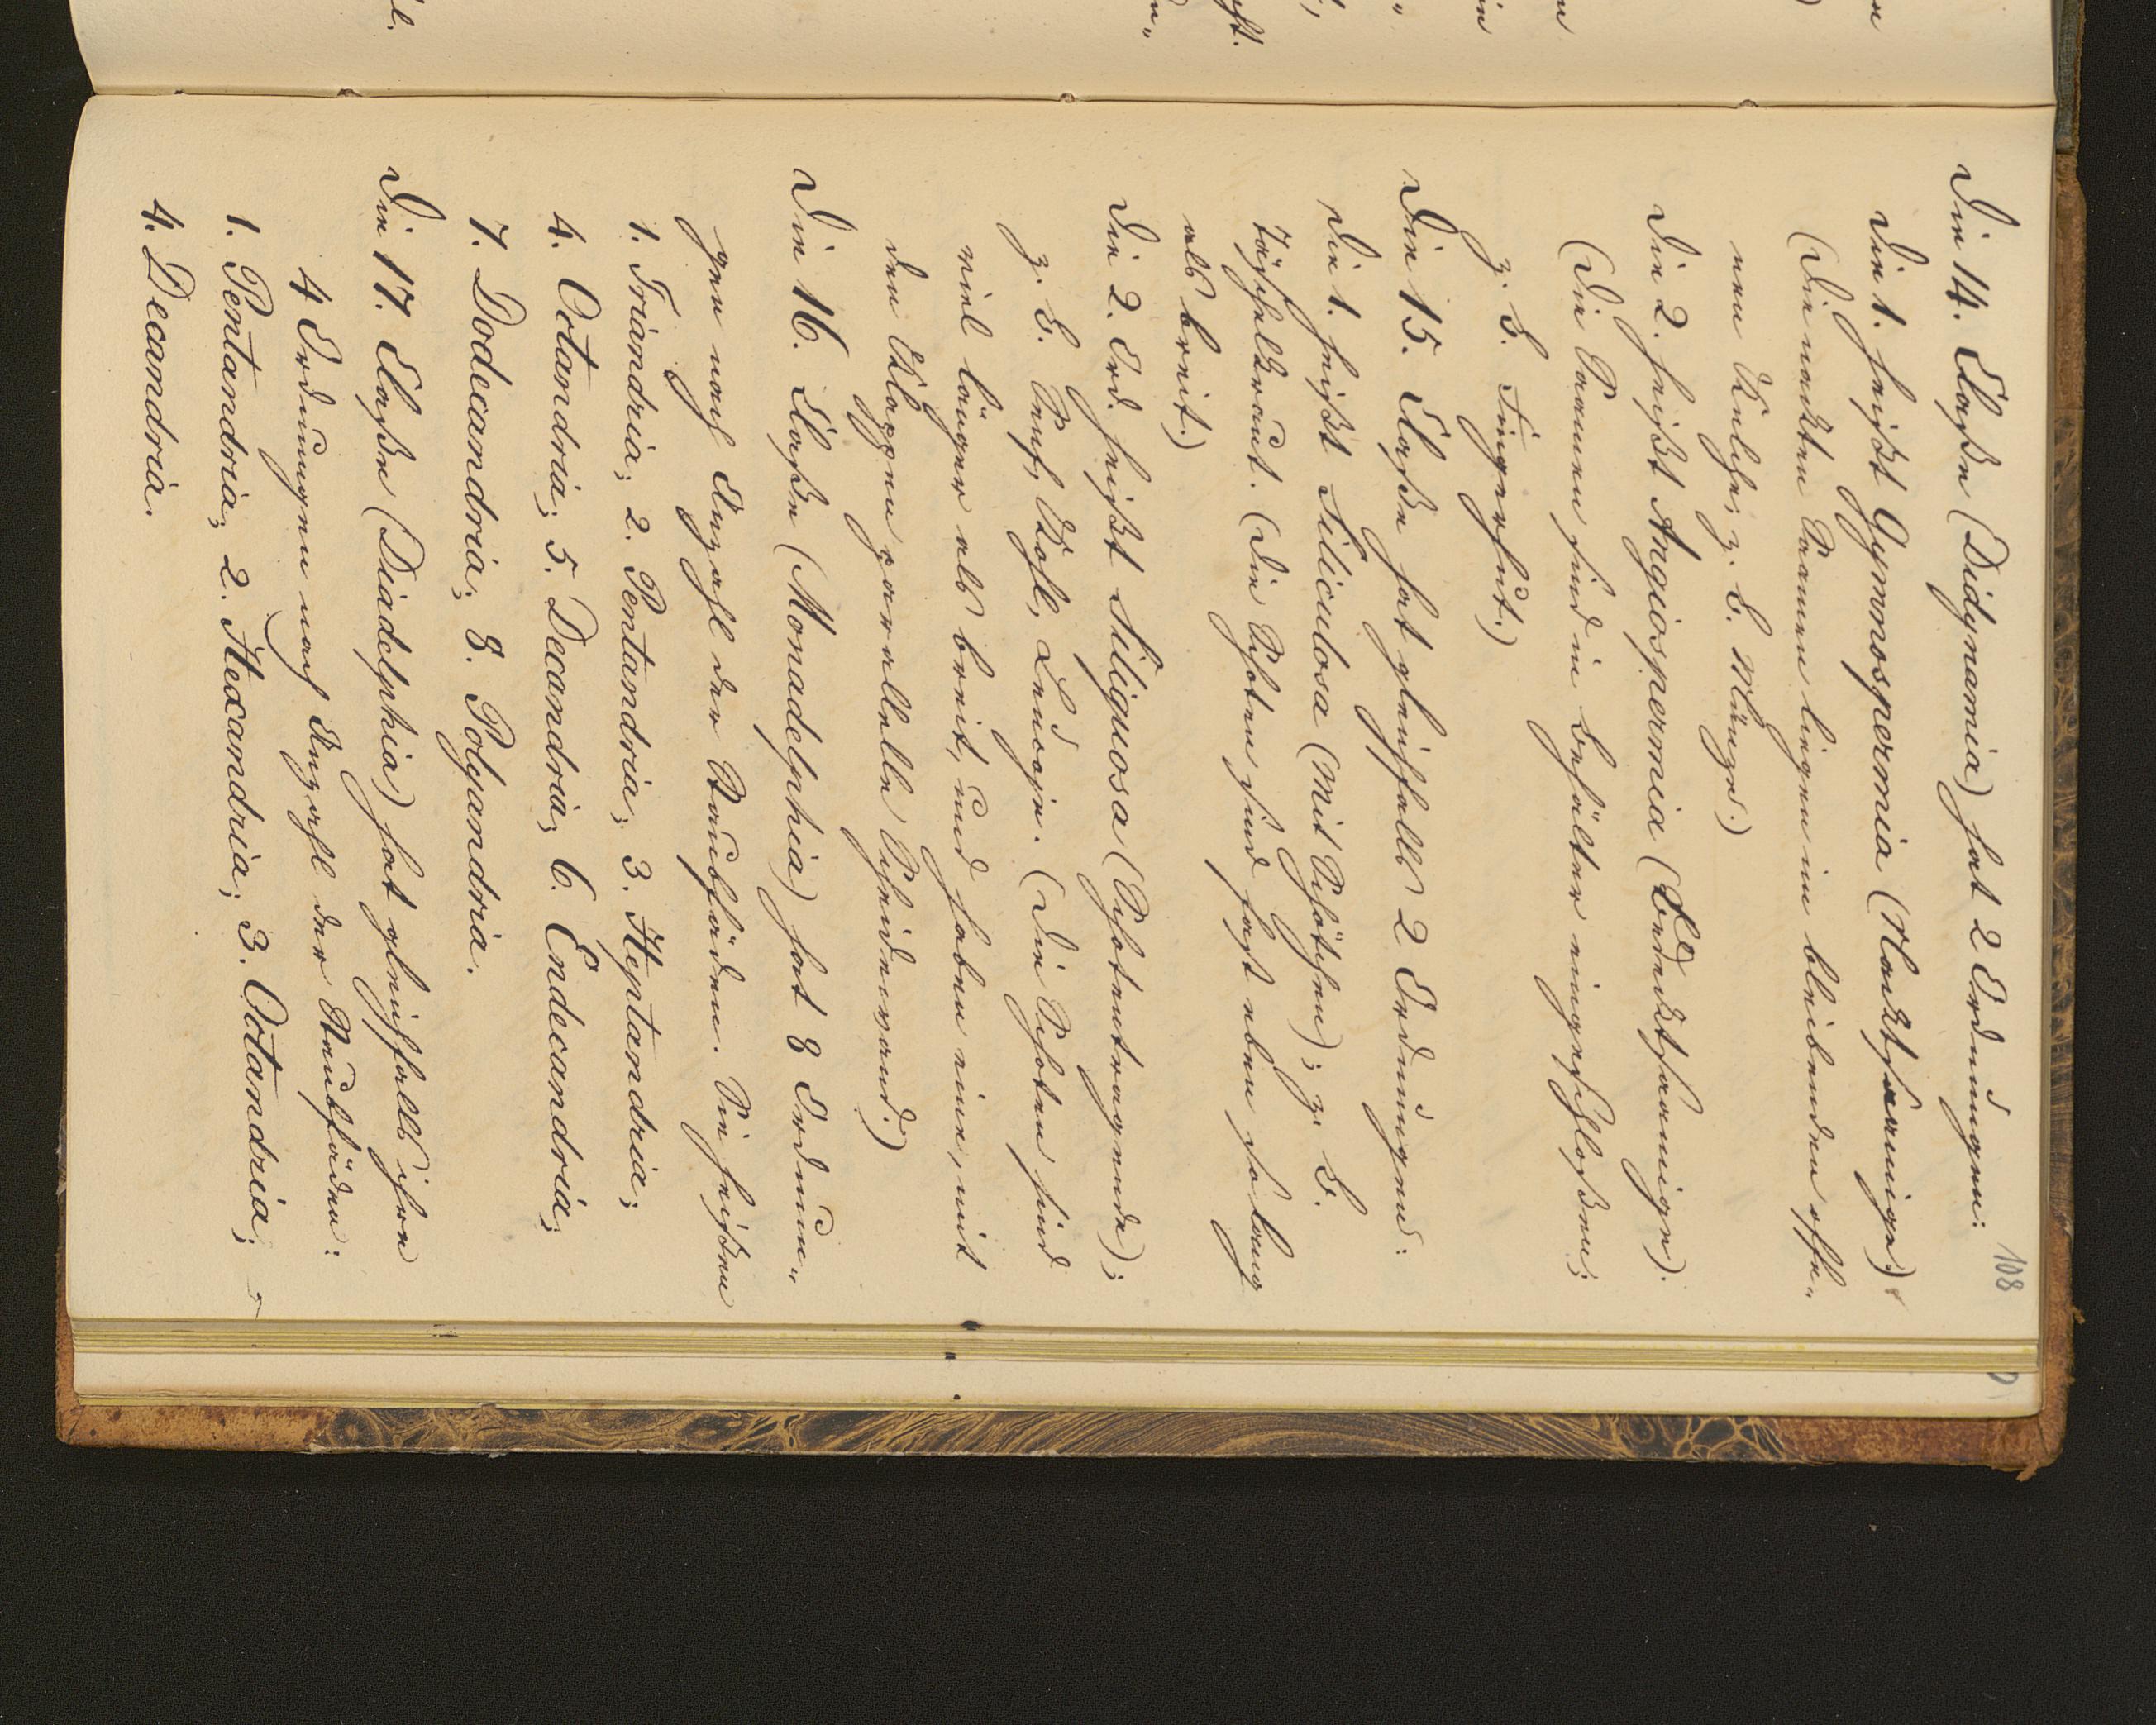 108
Die 14. Claße (Didynamia) hat 2 Ordnungen:
Die 1. heißt Gymnospermia (Nacktsamige)
(Die nackten Saamen liegen im bleibenden offe-
nen Kelche; z. B. Münze.)
Die 2. heißt Angiospermia (Bedecktsaamige).
(Die Saamen sind in Behälter eingeschloßen;
z. B. Fingerhut.)
Die 15. Claße hat gleichfalls 2 Ordnungen:
Die 1. heißt Siliculosa (Mit Schötchen); z. B.
Täschelkraut. (Die Schoten sind fast eben so lang
als breit.)
Die 2. Ord. heißt Siliquosa (Schotentragende);
z. B. Senf, Kohl, Levkoje. (Die Schoten sind
viel länger als breit, und haben eine, mit
den Klappen parallelle Scheidewand.)
Die 16. Claße (Monadelphia) hat 8 Ordnun-
gen nach Anzahl der Staubfäden. Sie heißen
1. Triandria; 2. Pentandria; 3. Heptandria;
4. Octandria; 5. Decandria; 6. Endecandria;
7. Dodecandria; 8. Polyandria.
Die 17. Claße (Diadelphia) hat gleichfalls ihre
4 Ordnungen nach Anzahl der Staubfäden:
1. Pentandria; 2. Hexandria; 3. Octandria;
4. Decandria.